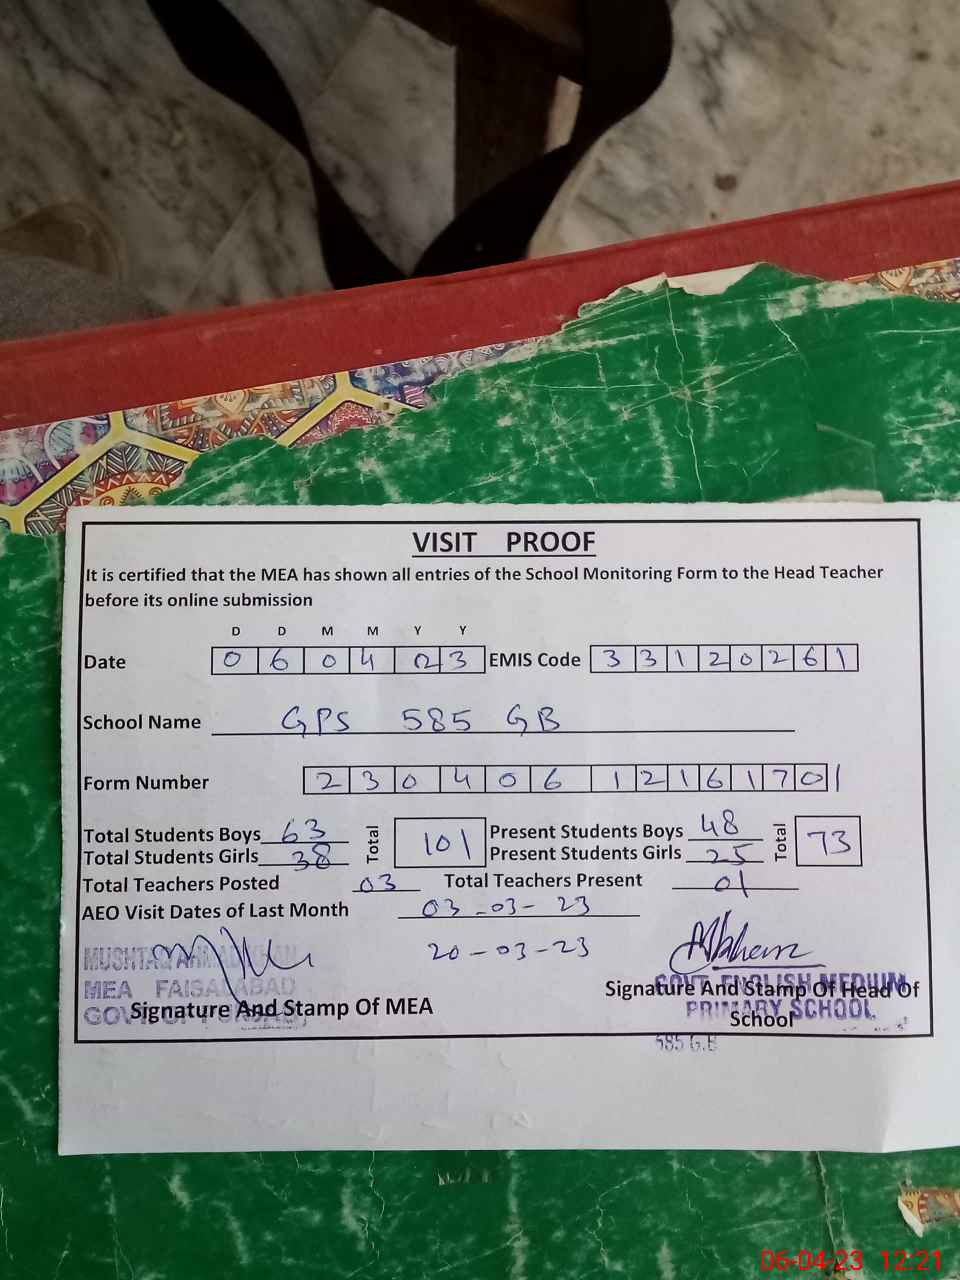 VISIT PROOF
It is certified that the MEA has shown all entries of the School Monitoring Form to the Head Teacher
before its online submission
D D M M Y Y
Date 0 6 0 4 2 3 EMIS Code 3 3 1 2 0 2 6 1
School Name GPS 585 GB
Form Number 2 3 0 4 0 6 1 2 1 6 1 7 0 1
Total Students Boys 63 Total 101 Present Students Boys 48 Total 73
Total Students Girls 38 Present Students Girls 25
Total Teachers Posted 03 Total Teachers Present 01
AEO Visit Dates of Last Month 03-03-23
20-03-23
MUSHTAQ AHMAD KHAN
MEA FAISALABAD
Signature And Stamp Of MEA
GOVT. ENGLISH MEDIUM
Signature And Stamp Of Head Of
PRIMARY SCHOOL
School
585 G.B
06-04-23 12:21